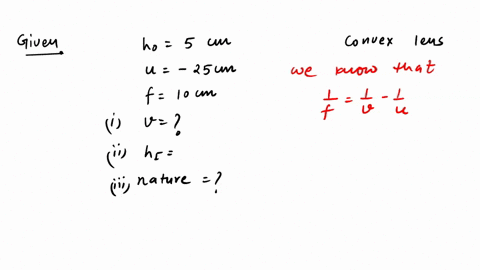 Given
h₀ = 5 cm
u = - 25 cm
f = 10 cm
(i) v = ?
(ii) h_I =
(iii) nature = ?
Convex lens
we know that
1/f = 1/v - 1/u